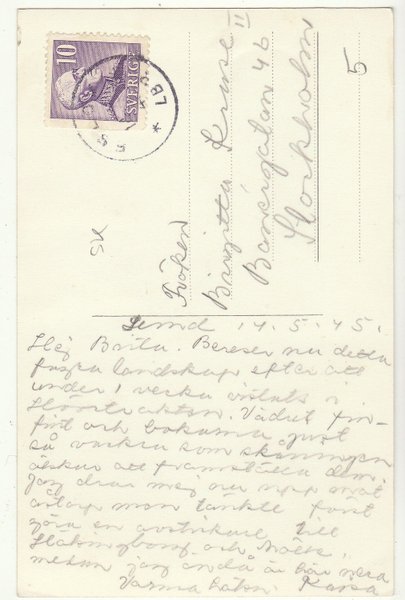 10
SVERIGE
LBR
5
SK
Fröken
Birgitta Kruse II
Banérgatan 46
Stockholm
Lund 14.5.45.
Hej Brita. Bereser nu detta
landskap efter att
under 1 vecka vistats i
Höörstrakten. Vädret
fint och bokarna just
så vackra som skåningen
älskar att framställa dem.
Jag drar mej nu upp mot
men tänkte först
göra en avstickare till
Hälsingborg och Mölle,
medan jag ändå är här nere
Varma häls. Kajsa